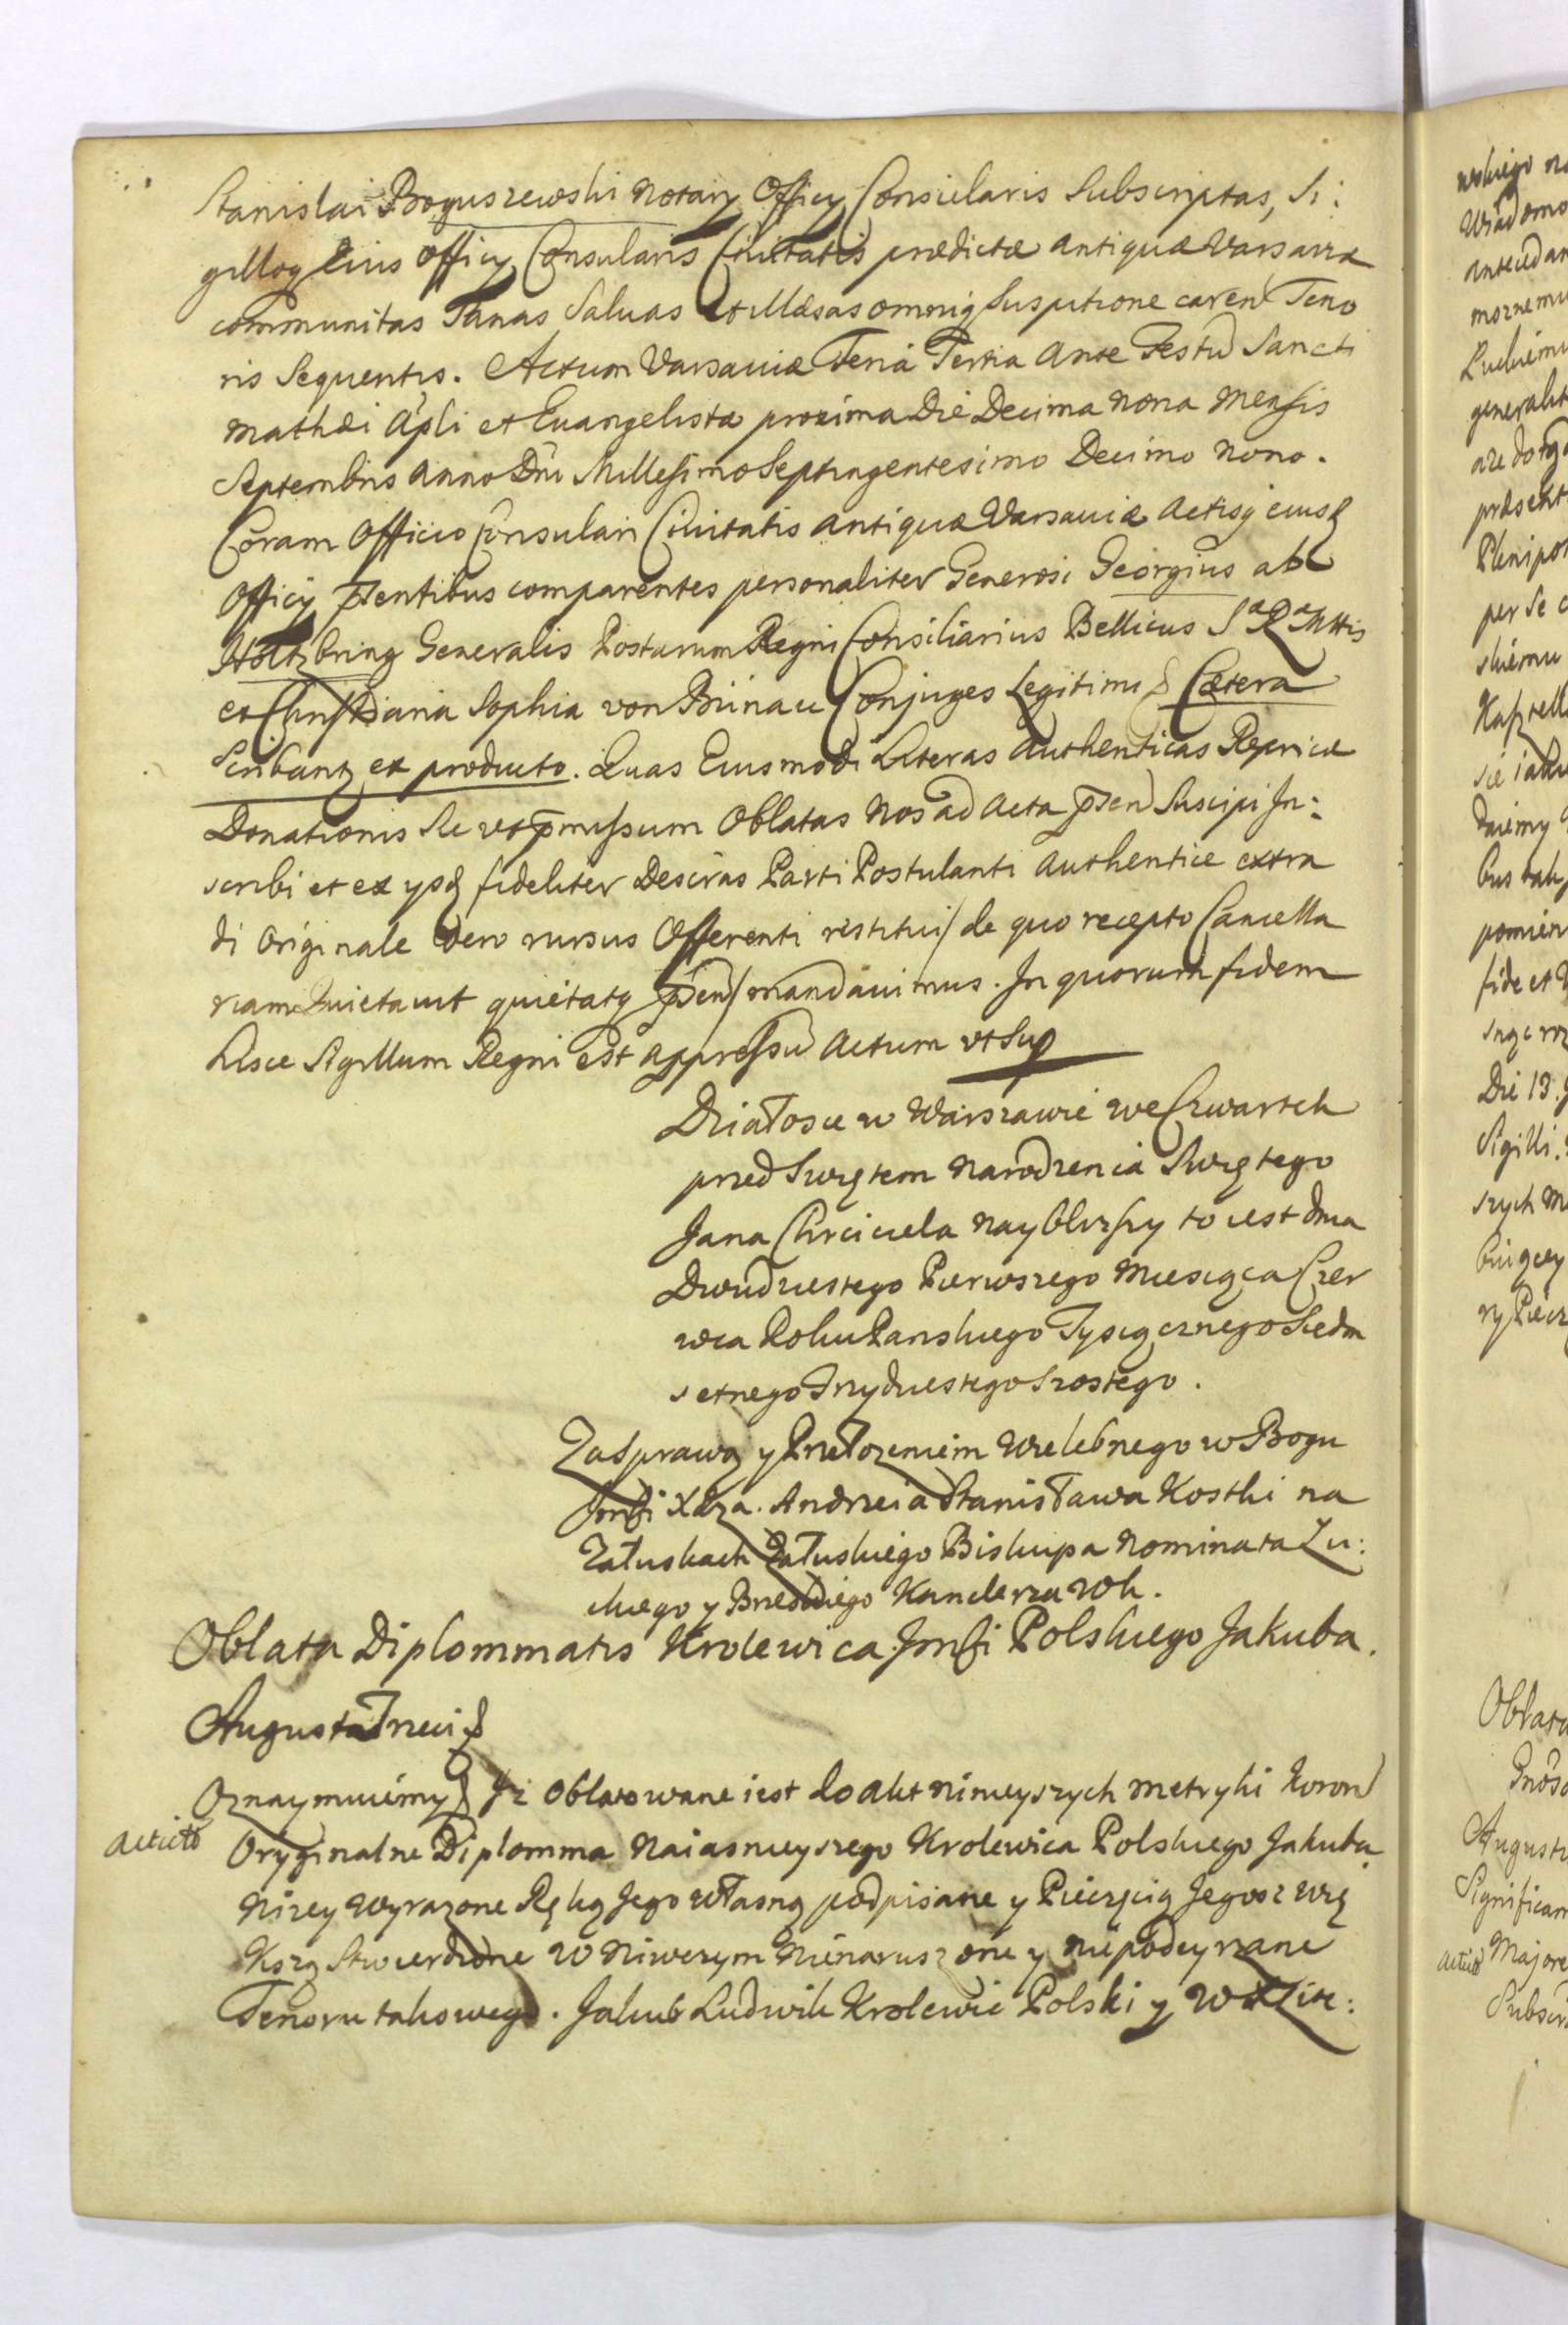 Stanislai Boguszewski Notarij Officij Consularis Subscriptas, Si:
gilloq Eius Officij Consularis Civitatis prædictæ Antiquæ Varsaviæ
communitas Sanas Salvas et Illæsas omniq Suspitione caren Teno
ris Sequentis. Actum Varsaviæ Feria Tertia Ante Festu Sancti
Mathæi Apli et Euangelistæ proxima Die Decima Nona Mensis
Septembris Anno Dni Millesimo Septingentesimo Decimo Nono.
Coram Officio Consulari Civitatis Antiquæ Varsaviæ Actisq eiusd
Officij pntibus comparentes personaliter Generosi Georgius ab
Holtzbring Generalis Postarum Regni Consiliarius Bellicus S R Mttis
et Christiana Sophia von Biinau Conjuges Legitimi & Cætera
Scribantz ex producto. Quas Eiusmodi Literas Authenticas Reprica
Donationis Sic vt pmissum Oblatas Nos ad Acta pnsen Suscipi In:
scribi et ex ysd fideliter Descras Parti Postulanti Authentice extra
di Originale Vero rursus Offerenti restitui / de quo recepto Cancella
riam Quietavit quietatq psen / mandavimus. In quorum fidem
hisce Sigillum Regni est appressu Actum vt Sup
Działosie w Warszawie we Czwartek
przed Swiętem Narodzenia Swiętego
Jana Chrciciela nayblizszy to iest dnia
Dwudziestego Pierwszego Miesiąca Czer
wca Roku Panskiego Tysiącznego Siedm
setnego Trzydziestego Szostego.
Za Sprawą y Przełozeniem Wielebnego w Bogu
Jmsci Xdza. Andrzeia Stanisława Kostki na
Załuskach Załuskiego Biskupa Nominata Łu:
ckiego y Brzeskiego Kanclerza Wk.
Oblata Diplommatis Krolewica Jmsci Polskiego Jakuba.
August Trzeci &
Oznaymuiemy & Jz Oblatowane iest do Akt ninieyszych Metryki Koron
Oryginalne Diplomma Naiasnieyszego Krolewica Polskiego Jakuba
Acticto
Nizey Wyrazone Ręką Jego własną podpisane y Pieczęcią Jegosz Wię
Kszą Stwierdzone W Niwczym Nienaruszone y niepodeyrzane
Tenoru takowego. Jakub Ludwik Krolewic Polski y WXLitt: